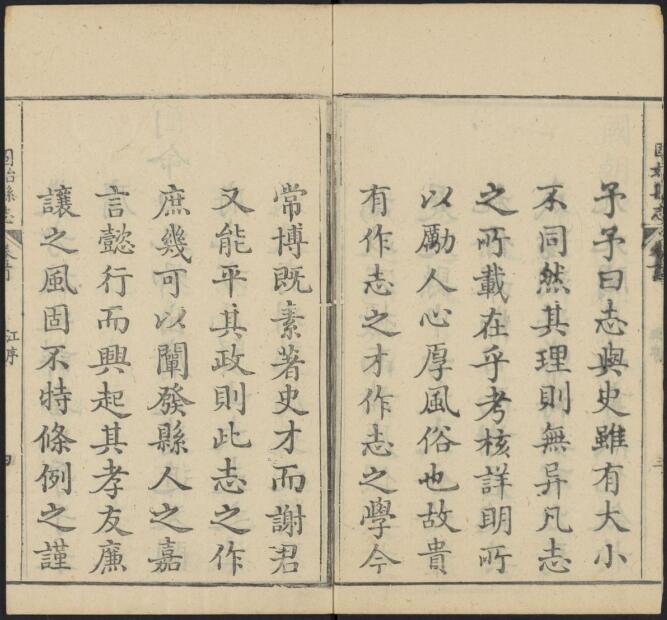 予予曰志與史雖有大小
不同然其理則無异凡志
之所載在乎考核詳明所
以勵人心厚風俗也故貴
有作志之才作志之學今
常博既素著史才而謝君
又能平其政則此志之作
庶幾可以闡發縣人之嘉
言懿行而興起其孝友廉
讓之風固不特條例之謹
固始縣志
卷首
江序
四